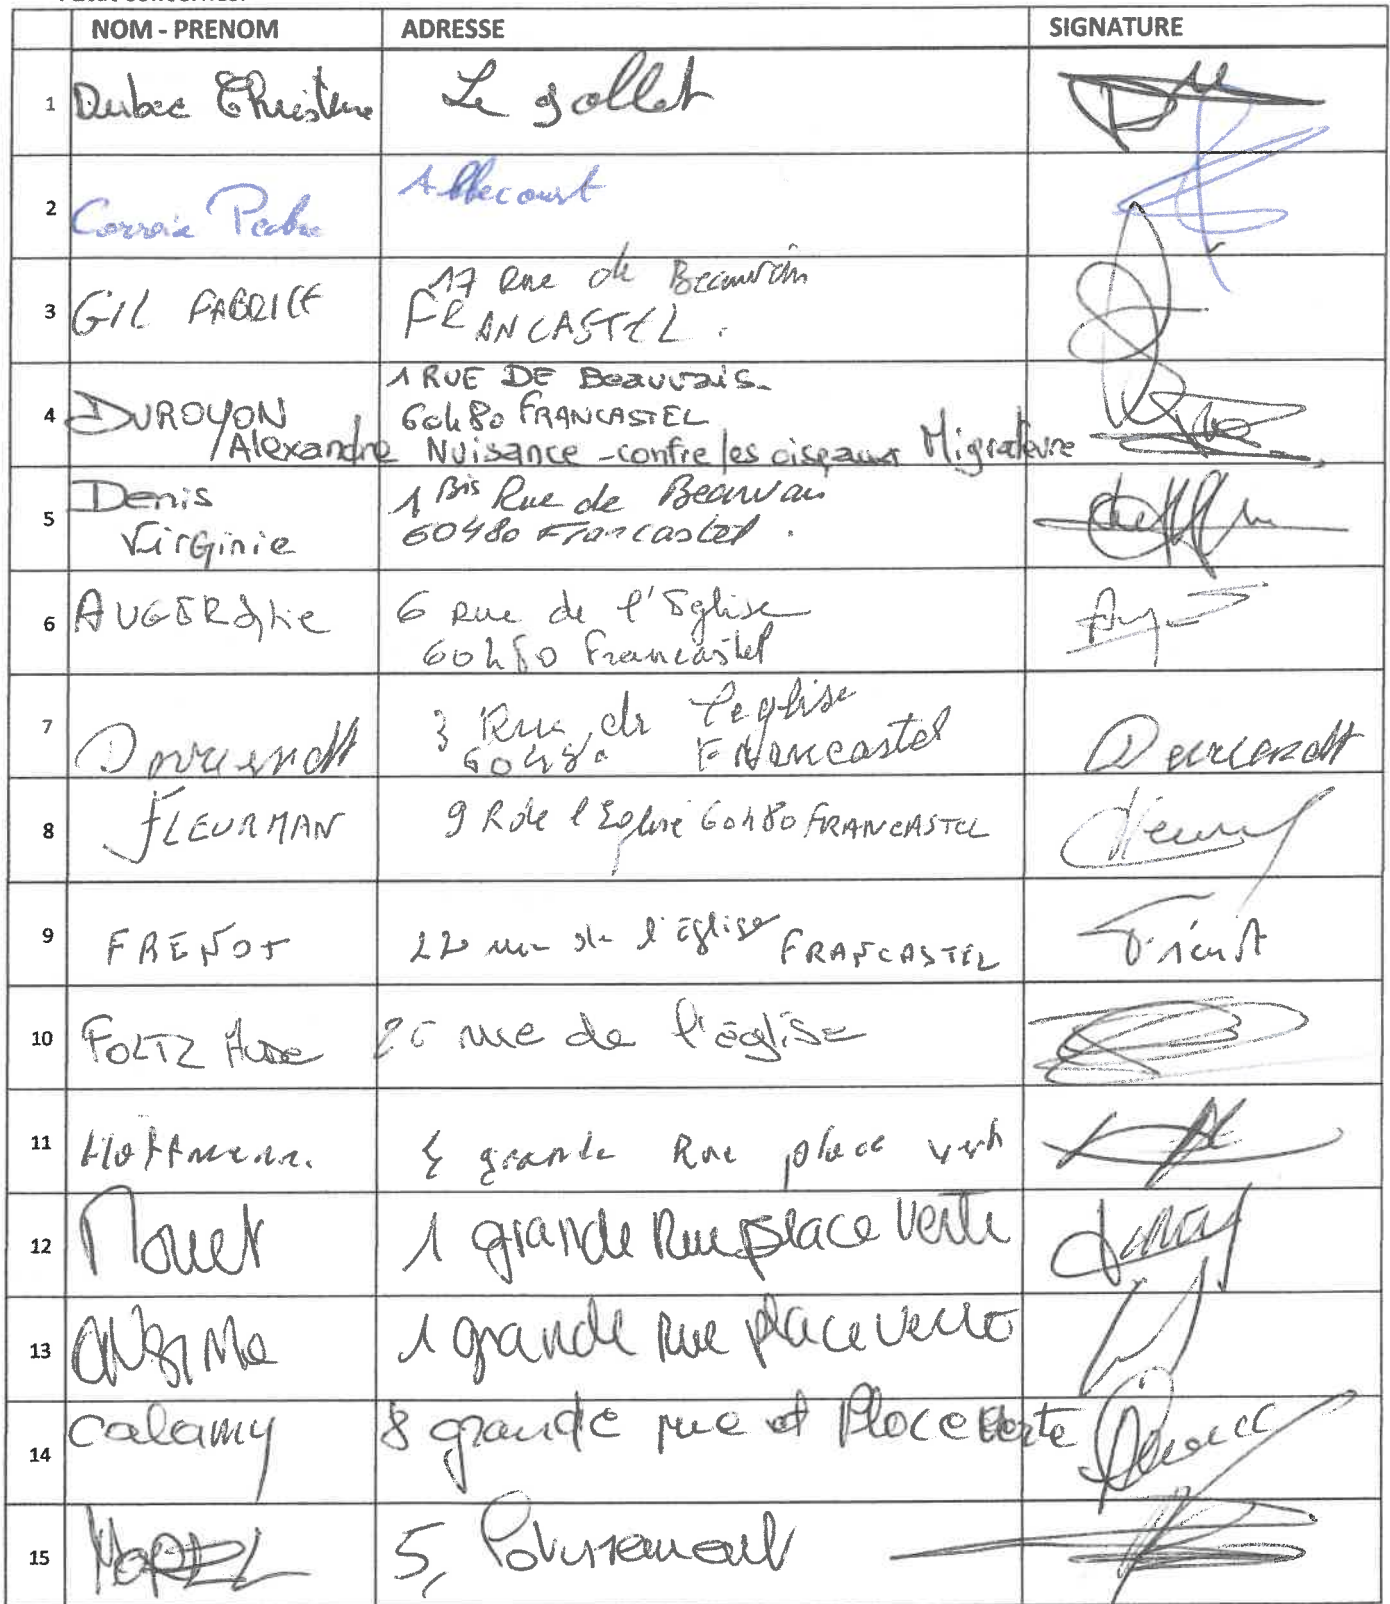 NOM - PRENOM ADRESSE SIGNATURE
1 Dubec Christine Le gallet
2 Correia Pedro Abbecourt
3 GIL FABRICE 17 Rue de Beauvais
FRANCASTEL.
4 DUROYON 1 RUE DE Beauvais.
60480 FRANCASTEL
Alexandre Nuisance - contre les oiseaux Migrateurs
5 Denis 1 Bis Rue de Beauvais
Virginie 60480 Francastel.
6 AUGER 6 Rue de l'Eglise
60480 Francastel
7 3 Rue de l'eglise
60480 Francastel
8 FLEURMAN 9 R de l'Eglise 60480 FRANCASTEL
9 FRENOT 22 rue de l'Eglise FRANCASTEL
10 FOLTZ Aude rue de l'église
11 Hoffmann. grande Rue place verte
12 Mouet 1 grande Rue place Verte
13 1 grande Rue place verte
14 Calamy 8 grande rue et Place Verte
15 MOREL 5,